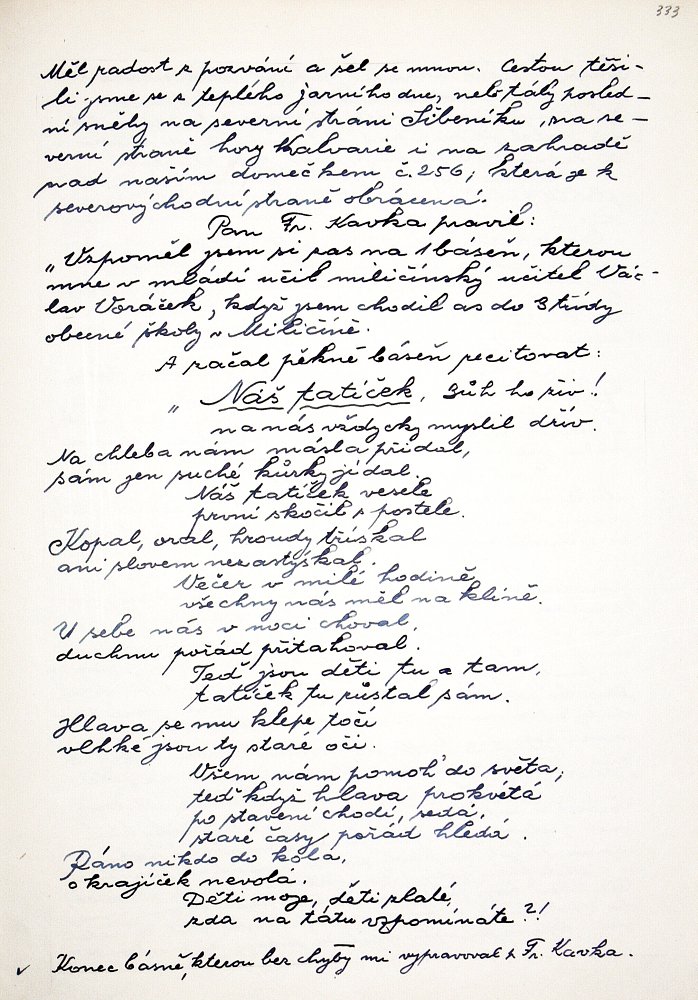 333
Měl radost z pozvání a šel se mnou. Cestou těši-
li jsme se z teplého jarního dne, neb tály posled-
ní sněhy na severní stráni Šibeníku, na se-
verní straně hory Kalvarie i na zahradě
nad naším domečkem č. 256, která je k
severovýchodní straně obrácena.
Pan Fr. Kavka pravil:
„Vzpoměl jsem si zas na 1 báseň, kterou
mne v mládí učil miličínský učitel Vác-
lav Voráček, když jsem chodil as do 3 třídy
obecné školy v Miličíně.
A začal pěkně báseň recitovat:
„ Náš tatíček, Bůh ho živ!
na nás vždycky myslil dřív.
Na chleba nám másla přidal,
sám jen suché kůrky jídal.
Náš tatíček vesele
první skočil s postele.
Kopal, oral, hroudy třískal
ani slovem nezastýskal.
Večer v milé hodině
všechny nás měl na klíně.
U sebe nás v noci choval,
duchnu pořád přitahoval.
Teď jsou děti tu a tam,
tatíček tu zůstal sám.
Hlava se mu klepe točí
vlhké jsou ty staré oči.
Všem nám pomoh' do světa,
teď když hlava prokvétá
po stavení chodí, sedá,
staré časy pořád hledá.
Ráno nikdo do kola,
o krajíček nevolá.
Děti moje, děti zlaté,
zda na tátu vzpomínáte?!
✓ Konec básně, kterou bez chyby mi vypravoval p. Fr. Kavka.